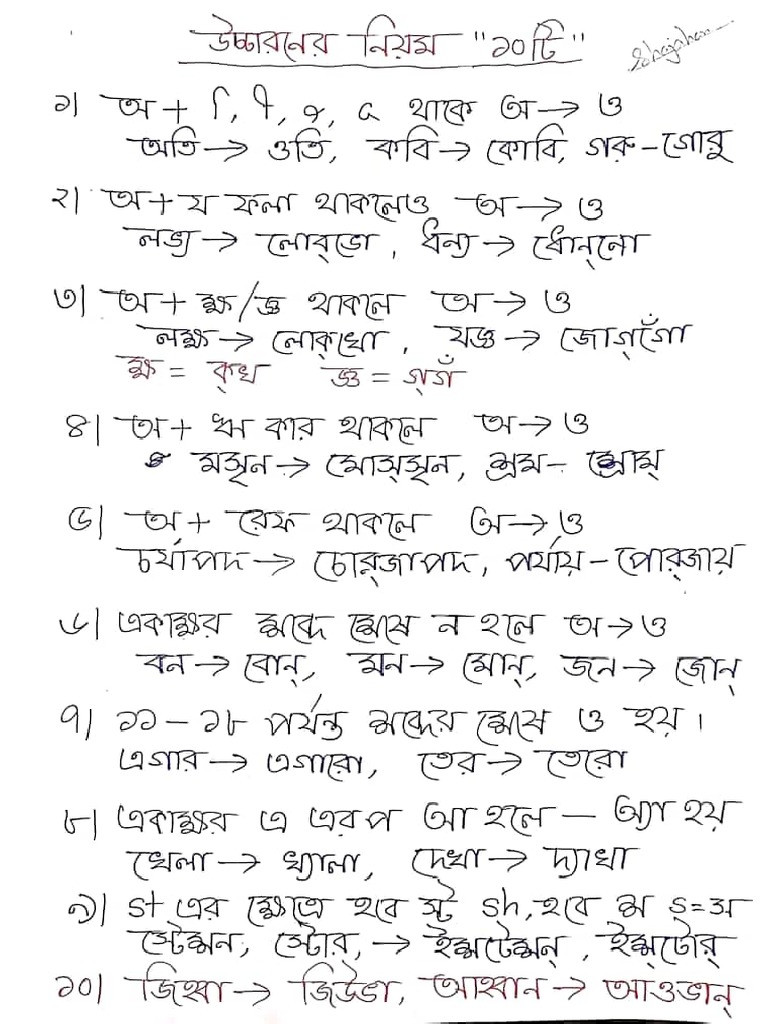 উচ্চারনের নিয়ম "১০টি"
Shajahan
১| অ + ি, ী, ু, ূ থাকে অ → ও
অতি → ওতি, কবি → কোবি, গরু – গোরু
২| অ + য ফলা থাকলেও অ → ও
লভ্য → লোব্ভো, ধন্য → ধোন্নো
৩| অ + ক্ষ/জ্ঞ থাকলে অ → ও
লক্ষ → লোক্খো, যজ্ঞ → জোগ্গোঁ
ক্ষ = ক্খ জ্ঞ = গ্গঁ
৪| অ + ঋ কার থাকলে অ → ও
মসৃন → মোস্সৃন, শ্রম – শ্রোম্
৫| অ + রেফ থাকলে অ → ও
চর্যাপদ → চোর্জাপদ, পর্যায় – পোর্জায়
৬| একাক্ষর শব্দে শেষে ন হলে অ → ও
বন → বোন্, মন → মোন্, জন → জোন্
৭| ১১ – ১৮ পর্যন্ত শব্দের শেষে ও হয়।
এগার → এগারো, তের → তেরো
৮| একাক্ষর এ এর প আ হলে – অ্যা হয়
খেলা → খ্যালা, দেখা → দ্যাখা
৯| st এর ক্ষেত্রে হবে স্ট sh, হবে শ s=স
স্টেশন, স্টোর, → ইশ্টেশন্, ইশ্টোর্
১০| জিহ্বা → জিউভা, আহ্বান → আওভান্